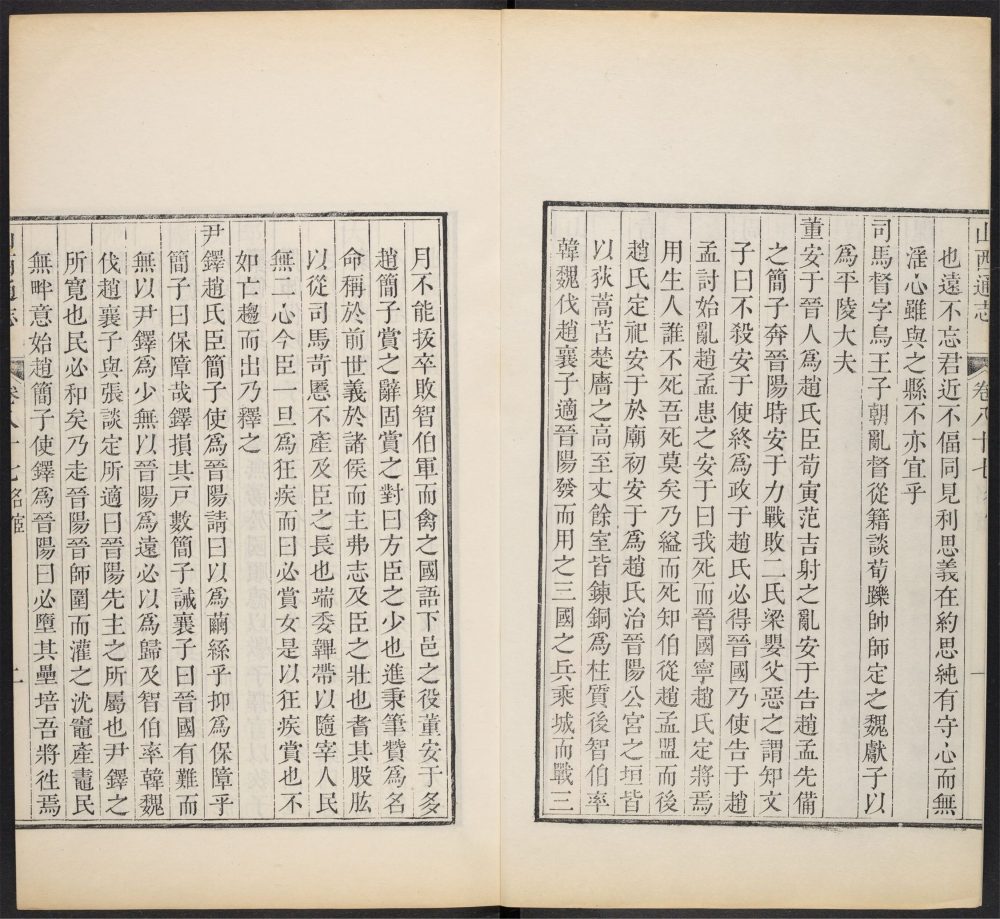 山西通志 卷八十七
也遠不忘君近不偪同見利思義在約思純有守心而無
淫心雖與之縣不亦宜乎
司馬督字烏王子朝亂督從籍談荀躒帥師定之魏獻子以
為平陵大夫
董安于晉人為趙氏臣荀寅范吉射之亂安于告趙孟先備
之簡子奔晉陽時安于力戰敗二氏梁嬰父惡之謂知文
子曰不殺安于使終為政于趙氏必得晉國乃使告于趙
孟討始亂趙孟患之安于曰我死而晉國寧趙氏定將焉
用生人誰不死吾死莫矣乃縊而死知伯從趙孟盟而後
趙氏定祀安于於廟初安于為趙氏治晉陽公宮之垣皆
以荻蒿苫楚廧之高至丈餘室皆鍊銅為柱質後智伯率
韓魏伐趙襄子適晉陽發而用之三國之兵乘城而戰三
月不能拔卒敗智伯軍而禽之國語下邑之役董安于多
趙簡子賞之辭固賞之對曰方臣之少也進秉筆贊為名
命稱於前世義於諸侯而主弗志及臣之壯也耆其股肱
以從司馬苛慝不產及臣之長也端委韠帶以隨宰人民
無二心今臣一旦為狂疾而曰必賞女是以狂疾賞也不
如亡趨而出乃釋之
尹鐸趙氏臣簡子使為晉陽請曰以為繭絲乎抑為保障乎
簡子曰保障哉鐸損其戸數簡子誡襄子曰晉國有難而
無以尹鐸為少無以晉陽為遠必以為歸及智伯率韓魏
伐趙襄子與張談定所適曰晉陽先主之所屬也尹鐸之
所寬也民必和矣乃走晉陽晉師圍而灌之沈竈產鼃民
無畔意始趙簡子使鐸為晉陽曰必墮其壘培吾將徃焉
卷八十七名宦